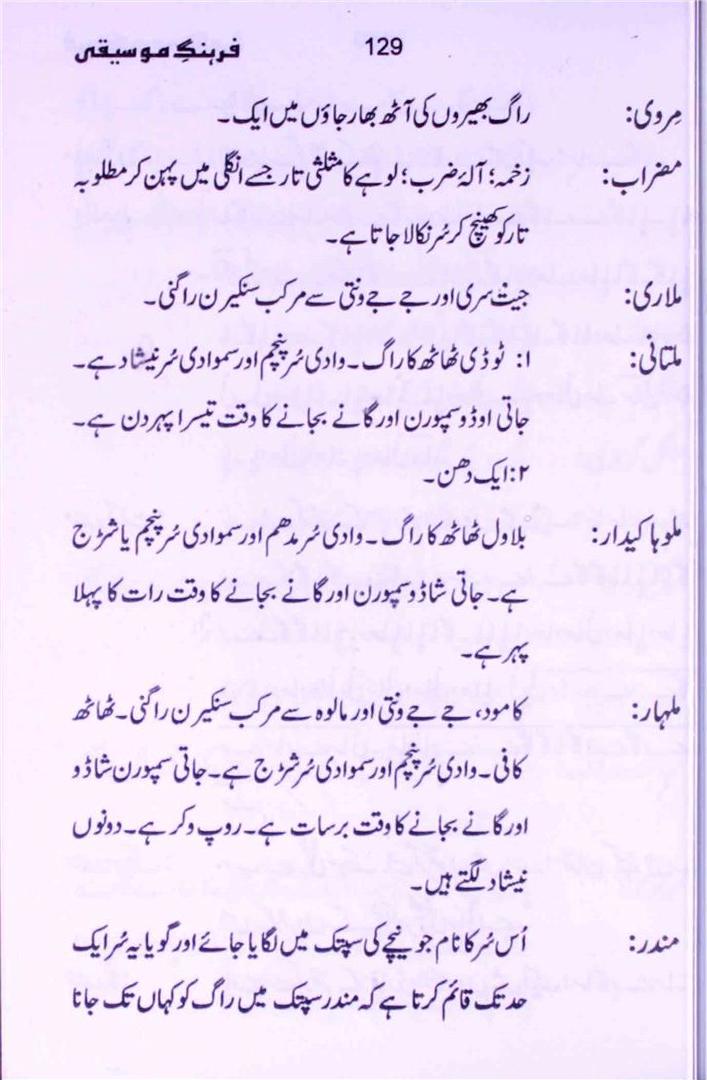 فرہنگِ موسیقی 129
مِروی: راگ بھیروں کی آٹھ بھارجاؤں میں ایک۔
مضراب: زخمہ؛ آلۂ ضرب؛ لوہے کا مثلثی تار جسے انگلی میں پہن کر مطلوبہ
تار کو کھینچ کر سُر نکالا جاتا ہے۔
ملاری: جیت سری اور جے جے ونتی سے مرکب سنکیرن راگنی۔
ملتانی: ۱: ٹوڈی ٹھاٹھ کا راگ۔ وادی سُر پنچم اور سموادی سُر نیشاد ہے۔
جاتی اوڈو سمپورن اور گانے بجانے کا وقت تیسرا پہر دن ہے۔
۲: ایک دھن۔
ملوہا کیدار: بلاول ٹھاٹھ کا راگ۔ وادی سُر مدھم اور سموادی سُر پنچم یا شڑج
ہے۔ جاتی شاڈو سمپورن اور گانے بجانے کا وقت رات کا پہلا
پہر ہے۔
ملہار: کامود، جے جے ونتی اور مالوہ سے مرکب سنکیرن راگنی۔ ٹھاٹھ
کافی۔ وادی سُر پنچم اور سموادی سُر شڑج ہے۔ جاتی سمپورن شاڈو
اور گانے بجانے کا وقت برسات ہے۔ روپ وکر ہے۔ دونوں
نیشاد لگتے ہیں۔
مندر: اُس سُر کا نام جو نیچے کی سپتک میں لگایا جائے اور گویا یہ سُر ایک
حد تک قائم کرتا ہے کہ مندر سپتک میں راگ کو کہاں تک جانا